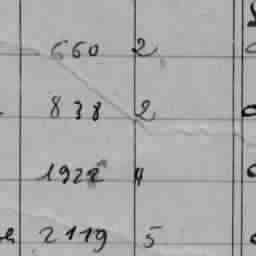 660 2
838 2
1922 4
2119 5